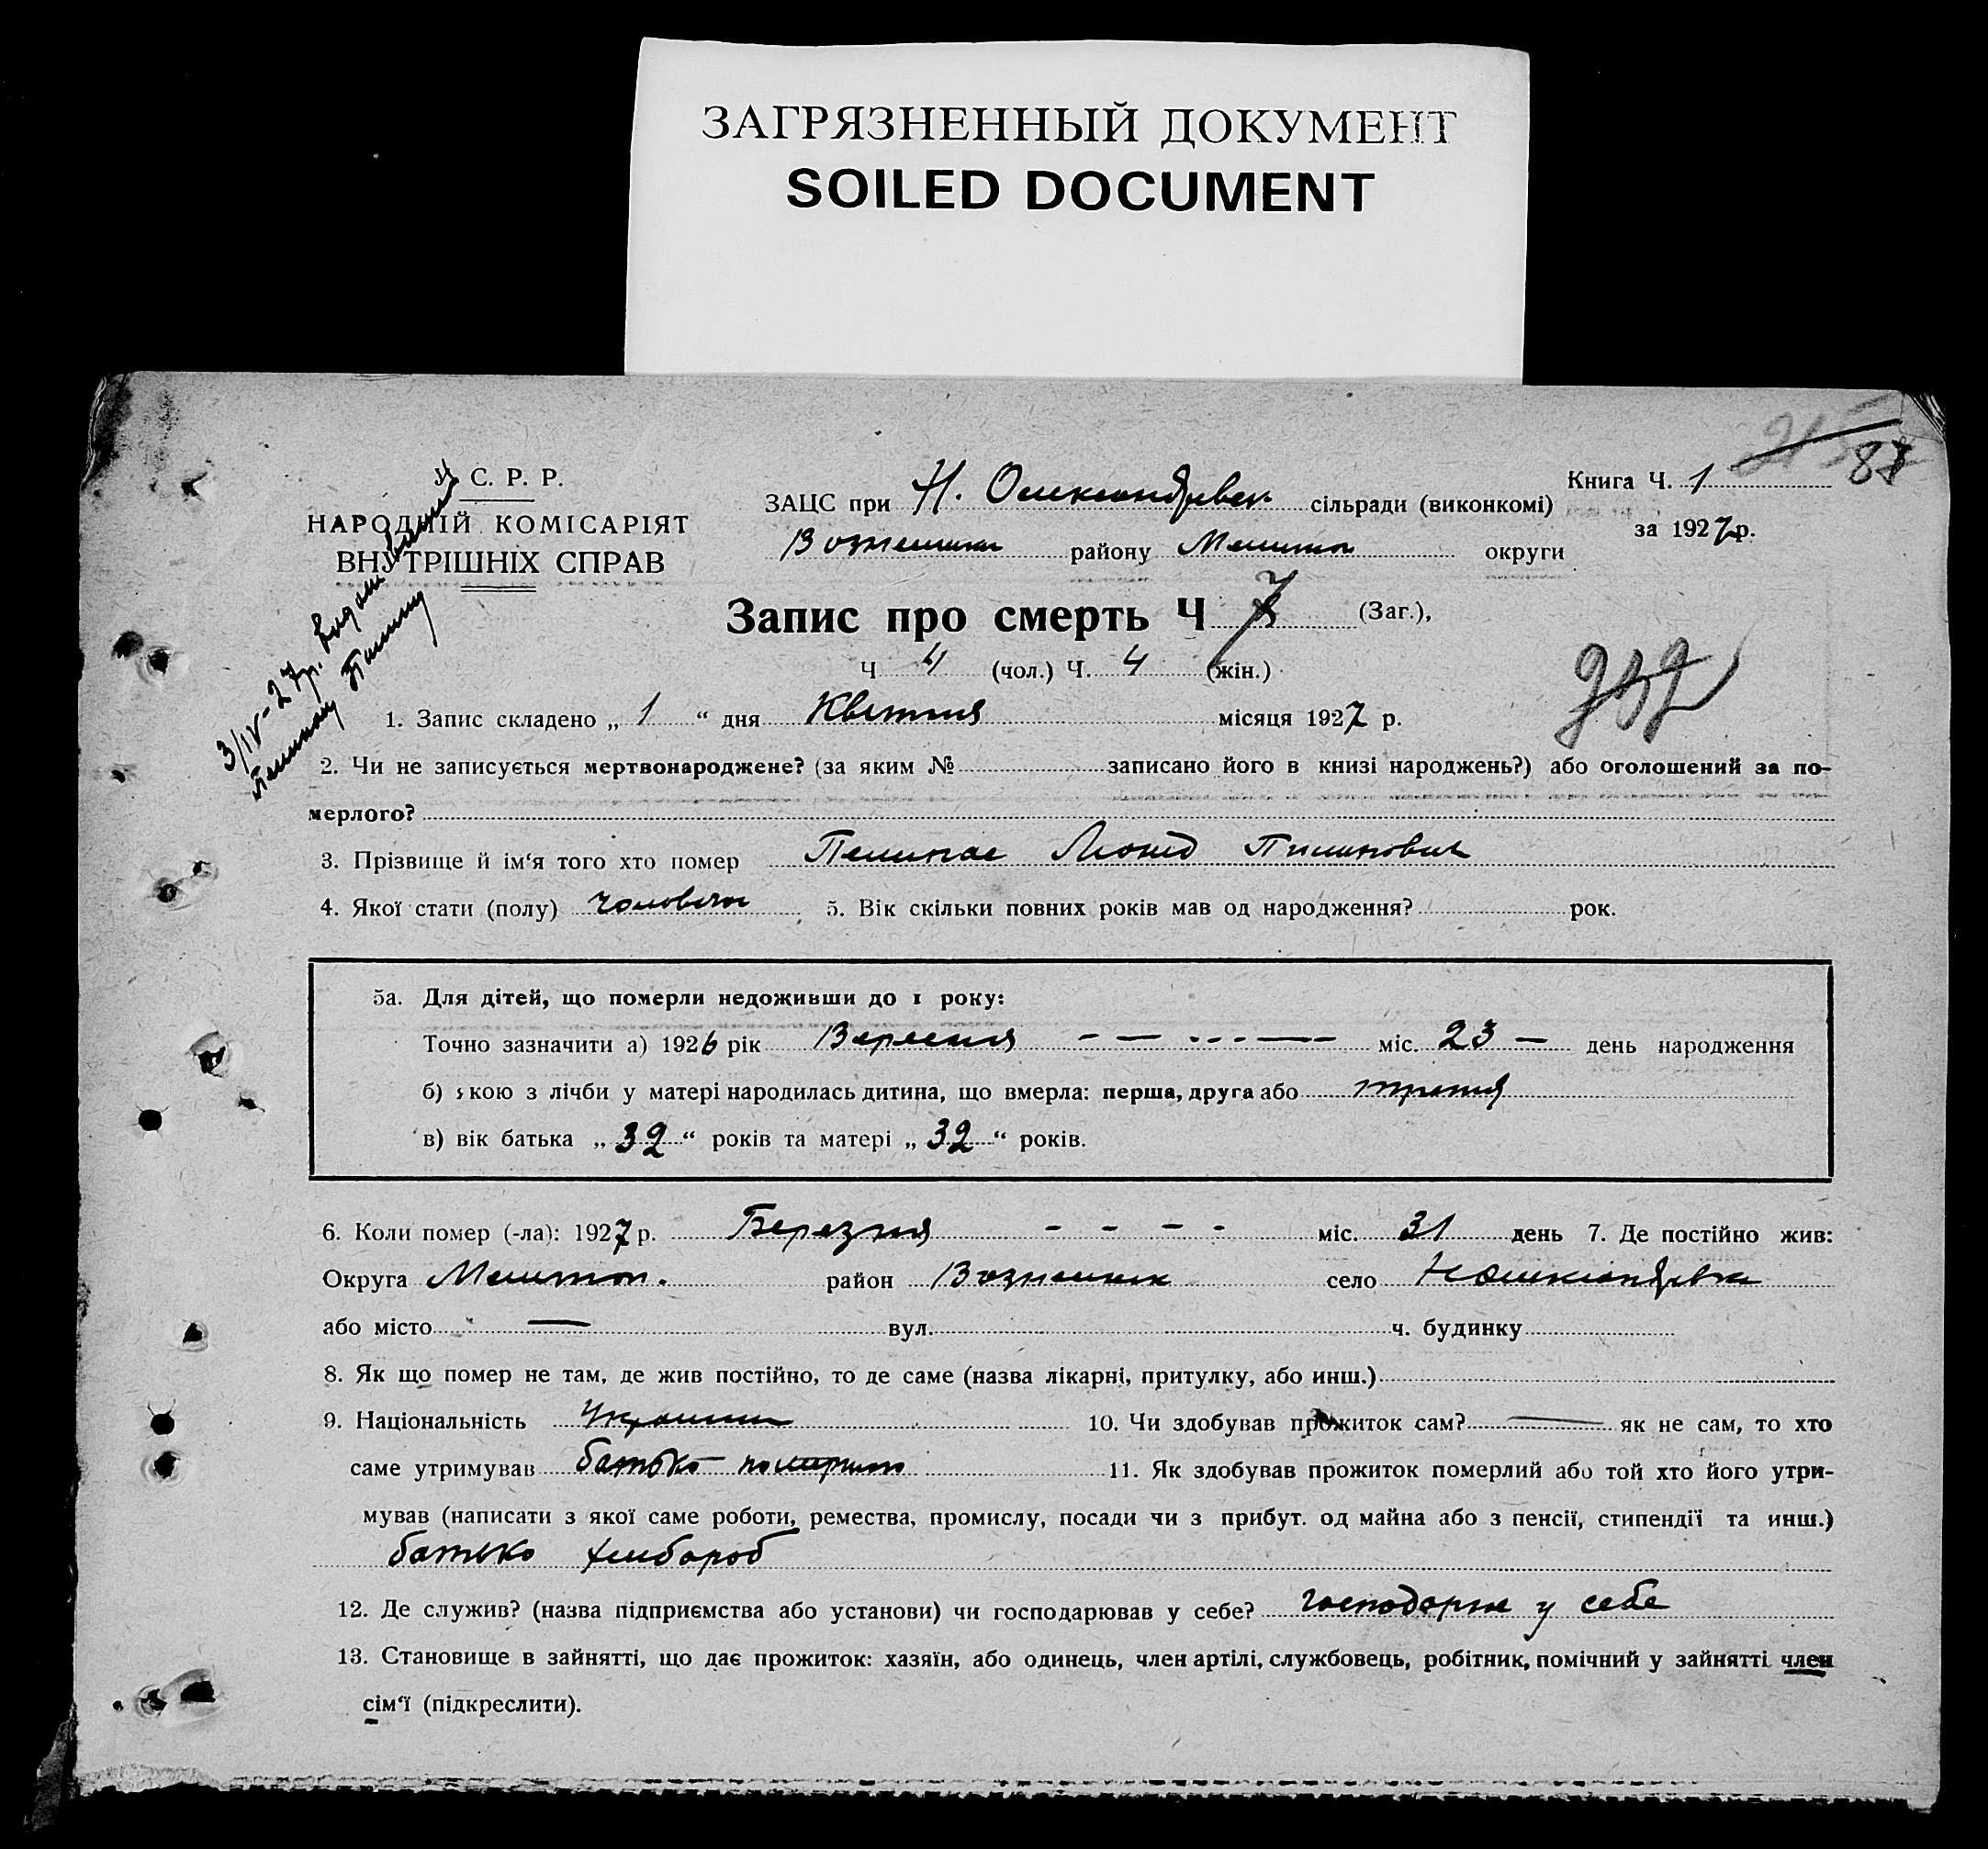 ЗАГРЯЗНЕННЫЙ ДОКУМЕНТ
SOILED DOCUMENT
У. С. Р. Р.
НАРОДНІЙ КОМІСАРІЯТ
ВНУТРІШНІХ СПРАВ
ЗАЦС при Н. Олександрівск. сільради (виконкомі)
району Мелитоп округи
Книга Ч. 1
за 1927 р.
87
Запис про смерть Ч 7 (Заг.),
Ч 4 (чол.) Ч. 4 (жін.)
3/IV-27р.
1. Запис складено „ 1 “ дня Квітня місяця 1927 р.
2. Чи не записується мертвонароджене? (за яким № записано його в книзі народжень?) або оголошений за по-
мерлого?
3. Прізвище й ім‘я того хто помер
4. Якої стати (полу) чоловіча 5. Вік скільки повних років мав од народження? рок.
5а. Для дітей, що померли недоживши до 1 року:
Точно зазначити а) 1926 рік Вересня міс. 23 — день народження
б) якою з лічби у матері народилась дитина, що вмерла: перша, друга або третя
в) вік батька „ 32 “ років та матері „ 32 “ років.
6. Коли помер (-ла): 1927 р. Березня - - - - міс. 31 день 7. Де постійно жив:
Округа Мелитоп. район Вознесенск село Н Олександрівка
або місто — вул. ч. будинку
8. Як що помер не там, де жив постійно, то де саме (назва лікарні, притулку, або инш.)
9. Національність 10. Чи здобував прожиток сам? — як не сам, то хто
саме утримував батько 11. Як здобував прожиток померлий або той хто його утри-
мував (написати з якої саме роботи, ремества, промислу, посади чи з прибут. од майна або з пенсії, стипендії та инш.)
батько хлібороб
12. Де служив? (назва підприємства або установи) чи господарював у себе? господарює у себе
13. Становище в зайнятті, що дає прожиток: хазяїн, або одинець, член артілі, службовець, робітник, помічний у зайнятті член
сім‘ї (підкреслити).